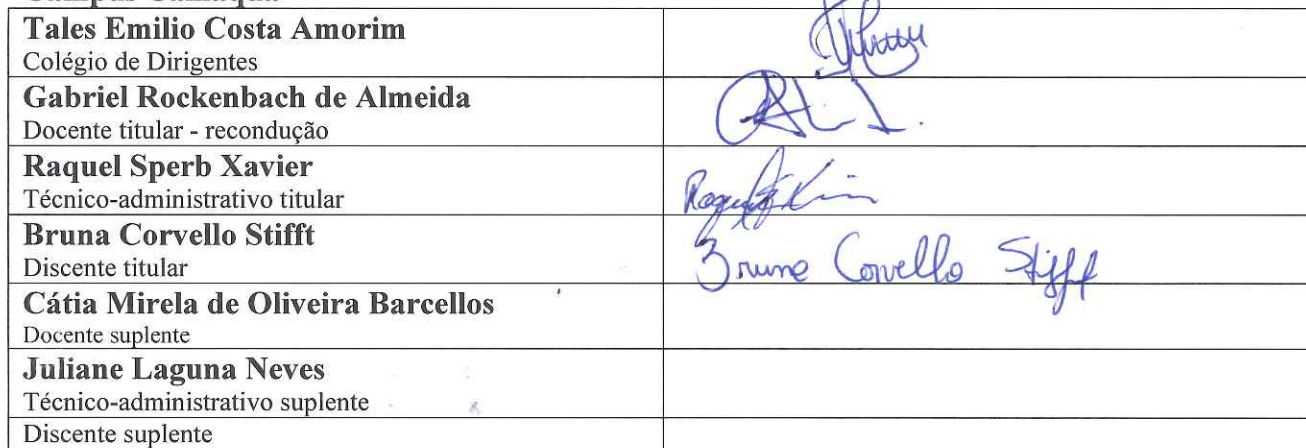 Tales Emilio Costa Amorim
Colégio de Dirigentes
Gabriel Rockenbach de Almeida
Docente titular - recondução
Raquel Sperb Xavier
Técnico-administrativo titular
Bruna Corvello Stifft
Bruna Corvello Stifft
Discente titular
Cátia Mirela de Oliveira Barcellos
Docente suplente
Juliane Laguna Neves
Técnico-administrativo suplente
Discente suplente